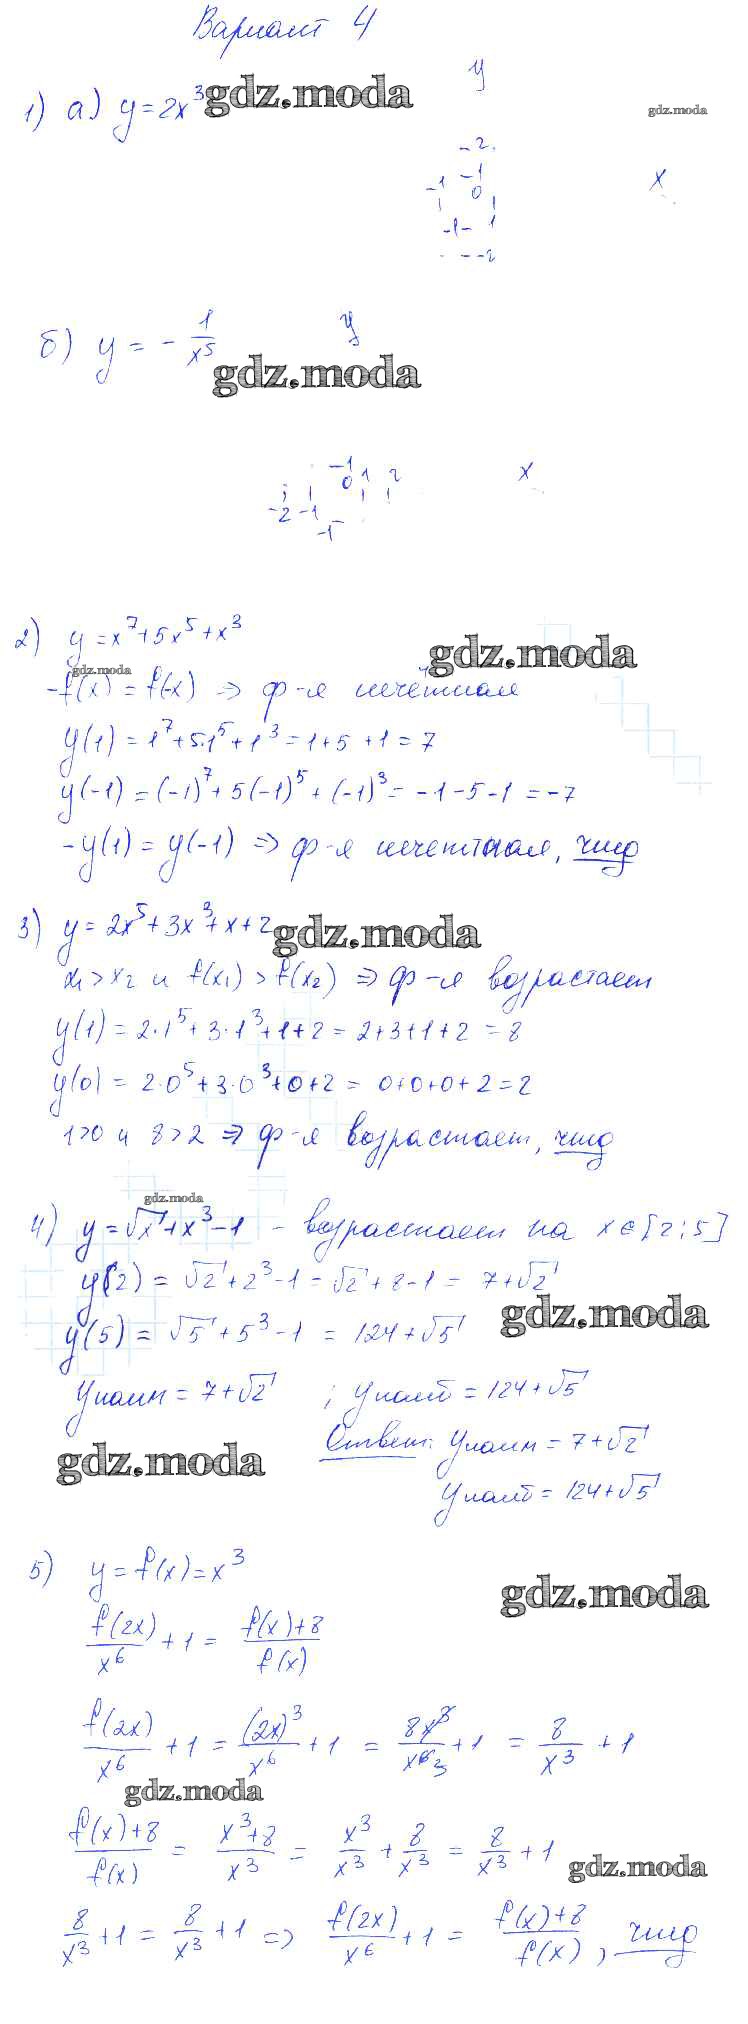 Вариант 4
1) а) y = 2x³
gdz.moda
gdz.moda
y
-2
-1
-1
0
x
1
-1
-2
б) y = - 1/x⁵
y
gdz.moda
-1
0
1
2
x
-2
-1
-1
2) y = x⁷ + 5x⁵ + x³
gdz.moda
gdz.moda
-f(x) = f(-x) ⇒ ф-я нечётная
y(1) = 1⁷ + 5·1⁵ + 1³ = 1 + 5 + 1 = 7
y(-1) = (-1)⁷ + 5(-1)⁵ + (-1)³ = -1 - 5 - 1 = -7
-y(1) = y(-1) ⇒ ф-я нечетная, чтд
3) y = 2x⁵ + 3x³ + x + 2
gdz.moda
x₁ > x₂ и f(x₁) > f(x₂) ⇒ ф-я возрастает
y(1) = 2·1⁵ + 3·1³ + 1 + 2 = 2 + 3 + 1 + 2 = 8
y(0) = 2·0⁵ + 3·0³ + 0 + 2 = 0 + 0 + 0 + 2 = 2
1 > 0 и 8 > 2 ⇒ ф-я возрастает, чтд
gdz.moda
4) y = √x + x³ - 1 - возрастает на x ∈ [2; 5]
y(2) = √2 + 2³ - 1 = √2 + 8 - 1 = 7 + √2
gdz.moda
y(5) = √5 + 5³ - 1 = 124 + √5
yнаим = 7 + √2 ; yнаиб = 124 + √5
Ответ: yнаим = 7 + √2
gdz.moda
yнаиб = 124 + √5
5) y = f(x) = x³
gdz.moda
f(2x)/x⁶ + 1 = (f(x) + 8)/f(x)
f(2x)/x⁶ + 1 = (2x)³/x⁶ + 1 = 8x³/x⁶ 3 + 1 = 8/x³ + 1
gdz.moda
(f(x) + 8)/f(x) = (x³ + 8)/x³ = x³/x³ + 8/x³ = 8/x³ + 1
gdz.moda
8/x³ + 1 = 8/x³ + 1 ⇒ f(2x)/x⁶ + 1 = (f(x) + 8)/f(x), чтд